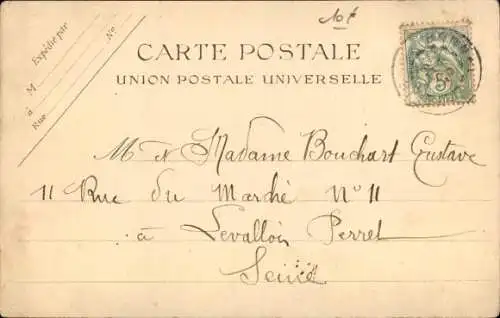 10 f
Expédié par
M
à
Rue
No
CARTE POSTALE
UNION POSTALE UNIVERSELLE
5
M et Madame Bouchart Gustave
11 Rue du Marché N° 11
à Levallois Perret
Seine